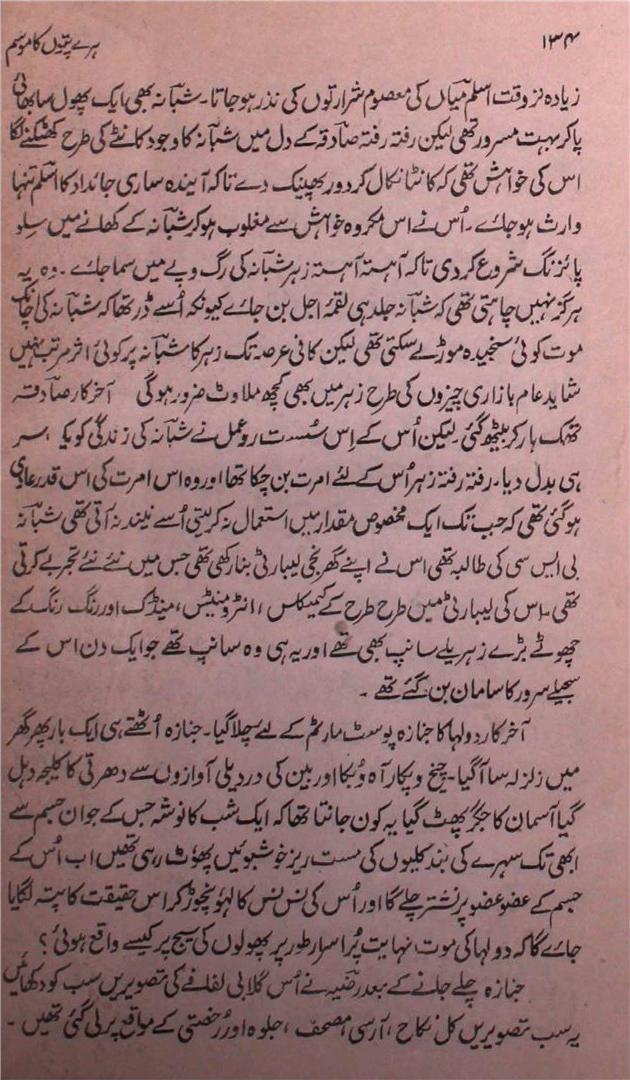 ۱۳۴ ہرے پتوں کا موسم
زیادہ تر وقت اسلم میاں کی معصوم شرارتوں کی نذر ہو جاتا۔ شبانہ بھی ایک پھول سا بھائی
پا کر بہت مسرور تھی لیکن رفتہ رفتہ صادقہ کے دل میں شبانہ کا وجود کانٹے کی طرح کھٹکنے لگا
اس کی خواہش تھی کہ کانٹا نکال کر دور پھینک دے تاکہ آیندہ ساری جائداد کا اسلم تنہا
وارث ہو جائے۔ اُس نے اس مکروہ خواہش سے مغلوب ہو کر شبانہ کے کھانے میں سلو
پائزنگ شروع کر دی تاکہ آہستہ آہستہ زہر شبانہ کی رگ و پے میں سما جائے۔ وہ یہ
ہرگز نہیں چاہتی تھی کہ شبانہ جلد ہی لقمۂ اجل بن جائے کیونکہ اُسے ڈر تھا کہ شبانہ کی اچانک
موت کوئی سنجیدہ موڑ لے سکتی تھی لیکن کافی عرصہ تک زہر کا شبانہ پر کوئی اثر مرتب نہیں
شاید عام بازاری چیزوں کی طرح زہر میں بھی کچھ ملاوٹ ضرور ہو گی آخر کار صادقہ
تھک ہار کر بیٹھ گئی لیکن اُس کے اِس سُست ردِعمل نے شبانہ کی زندگی کو یکسر
ہی بدل دیا۔ رفتہ رفتہ زہر اُس کے لئے امرت بن چکا تھا اور وہ اس امرت کی اس قدر عادی
ہو گئی تھی کہ جب تک ایک مخصوص مقدار میں استعمال نہ کر لیتی اُسے نیند نہ آتی تھی شبانہ
بی ایس سی کی طالبہ تھی اس نے اپنے گھر نجی لیبارٹی بنا رکھی تھی جس میں نئے نئے تجربے کرتی
تھی۔ اس کی لیبارٹی میں طرح طرح کے کیمیکلس، انٹرومنیٹس، مینڈک اور رنگ رنگ کے
چھوٹے بڑے زہریلے سانپ بھی تھے اور یہ ہی وہ سانپ تھے جو ایک دن اس کے
سجیلے سرور کا سامان بن گئے تھے۔
آخر کار دولہا کا جنازہ پوسٹ مارٹم کے لیے چلا گیا۔ جنازہ اُٹھتے ہی ایک بار پھر گھر
میں زلزلہ سا آ گیا۔ چیخ و پکار آہ و بُکا اور بین کی دردیلی آوازوں سے دھرتی کا کلیجہ دہل
گیا آسمان کا جگر پھٹ گیا یہ کون جانتا تھا کہ ایک شب کا نوشہ جس کے جوان جسم سے
ابھی تک سہرے کی بند کلیوں کی مست ریز خوشبوئیں پھوٹ رہی تھیں اب اُس کے
جسم کے عضو عضو پر نشتر چلے گا اور اُس کی نس نس کا لہو نچوڑ کر اس حقیقت کا پتہ لگایا
جائے گا کہ دولہا کی موت نہایت پُراسرار طور پر پھولوں کی سیج پر کیسے واقع ہوئی؟
جنازہ چلے جانے کے بعد رضیہ نے اُس گلابی لفافے کی تصویریں سب کو دکھائیں
یہ سب تصویریں کل نکاح، آرسی مصحف، جلوہ اور رُخصتی کے مواقع پر لی گئی تھیں۔